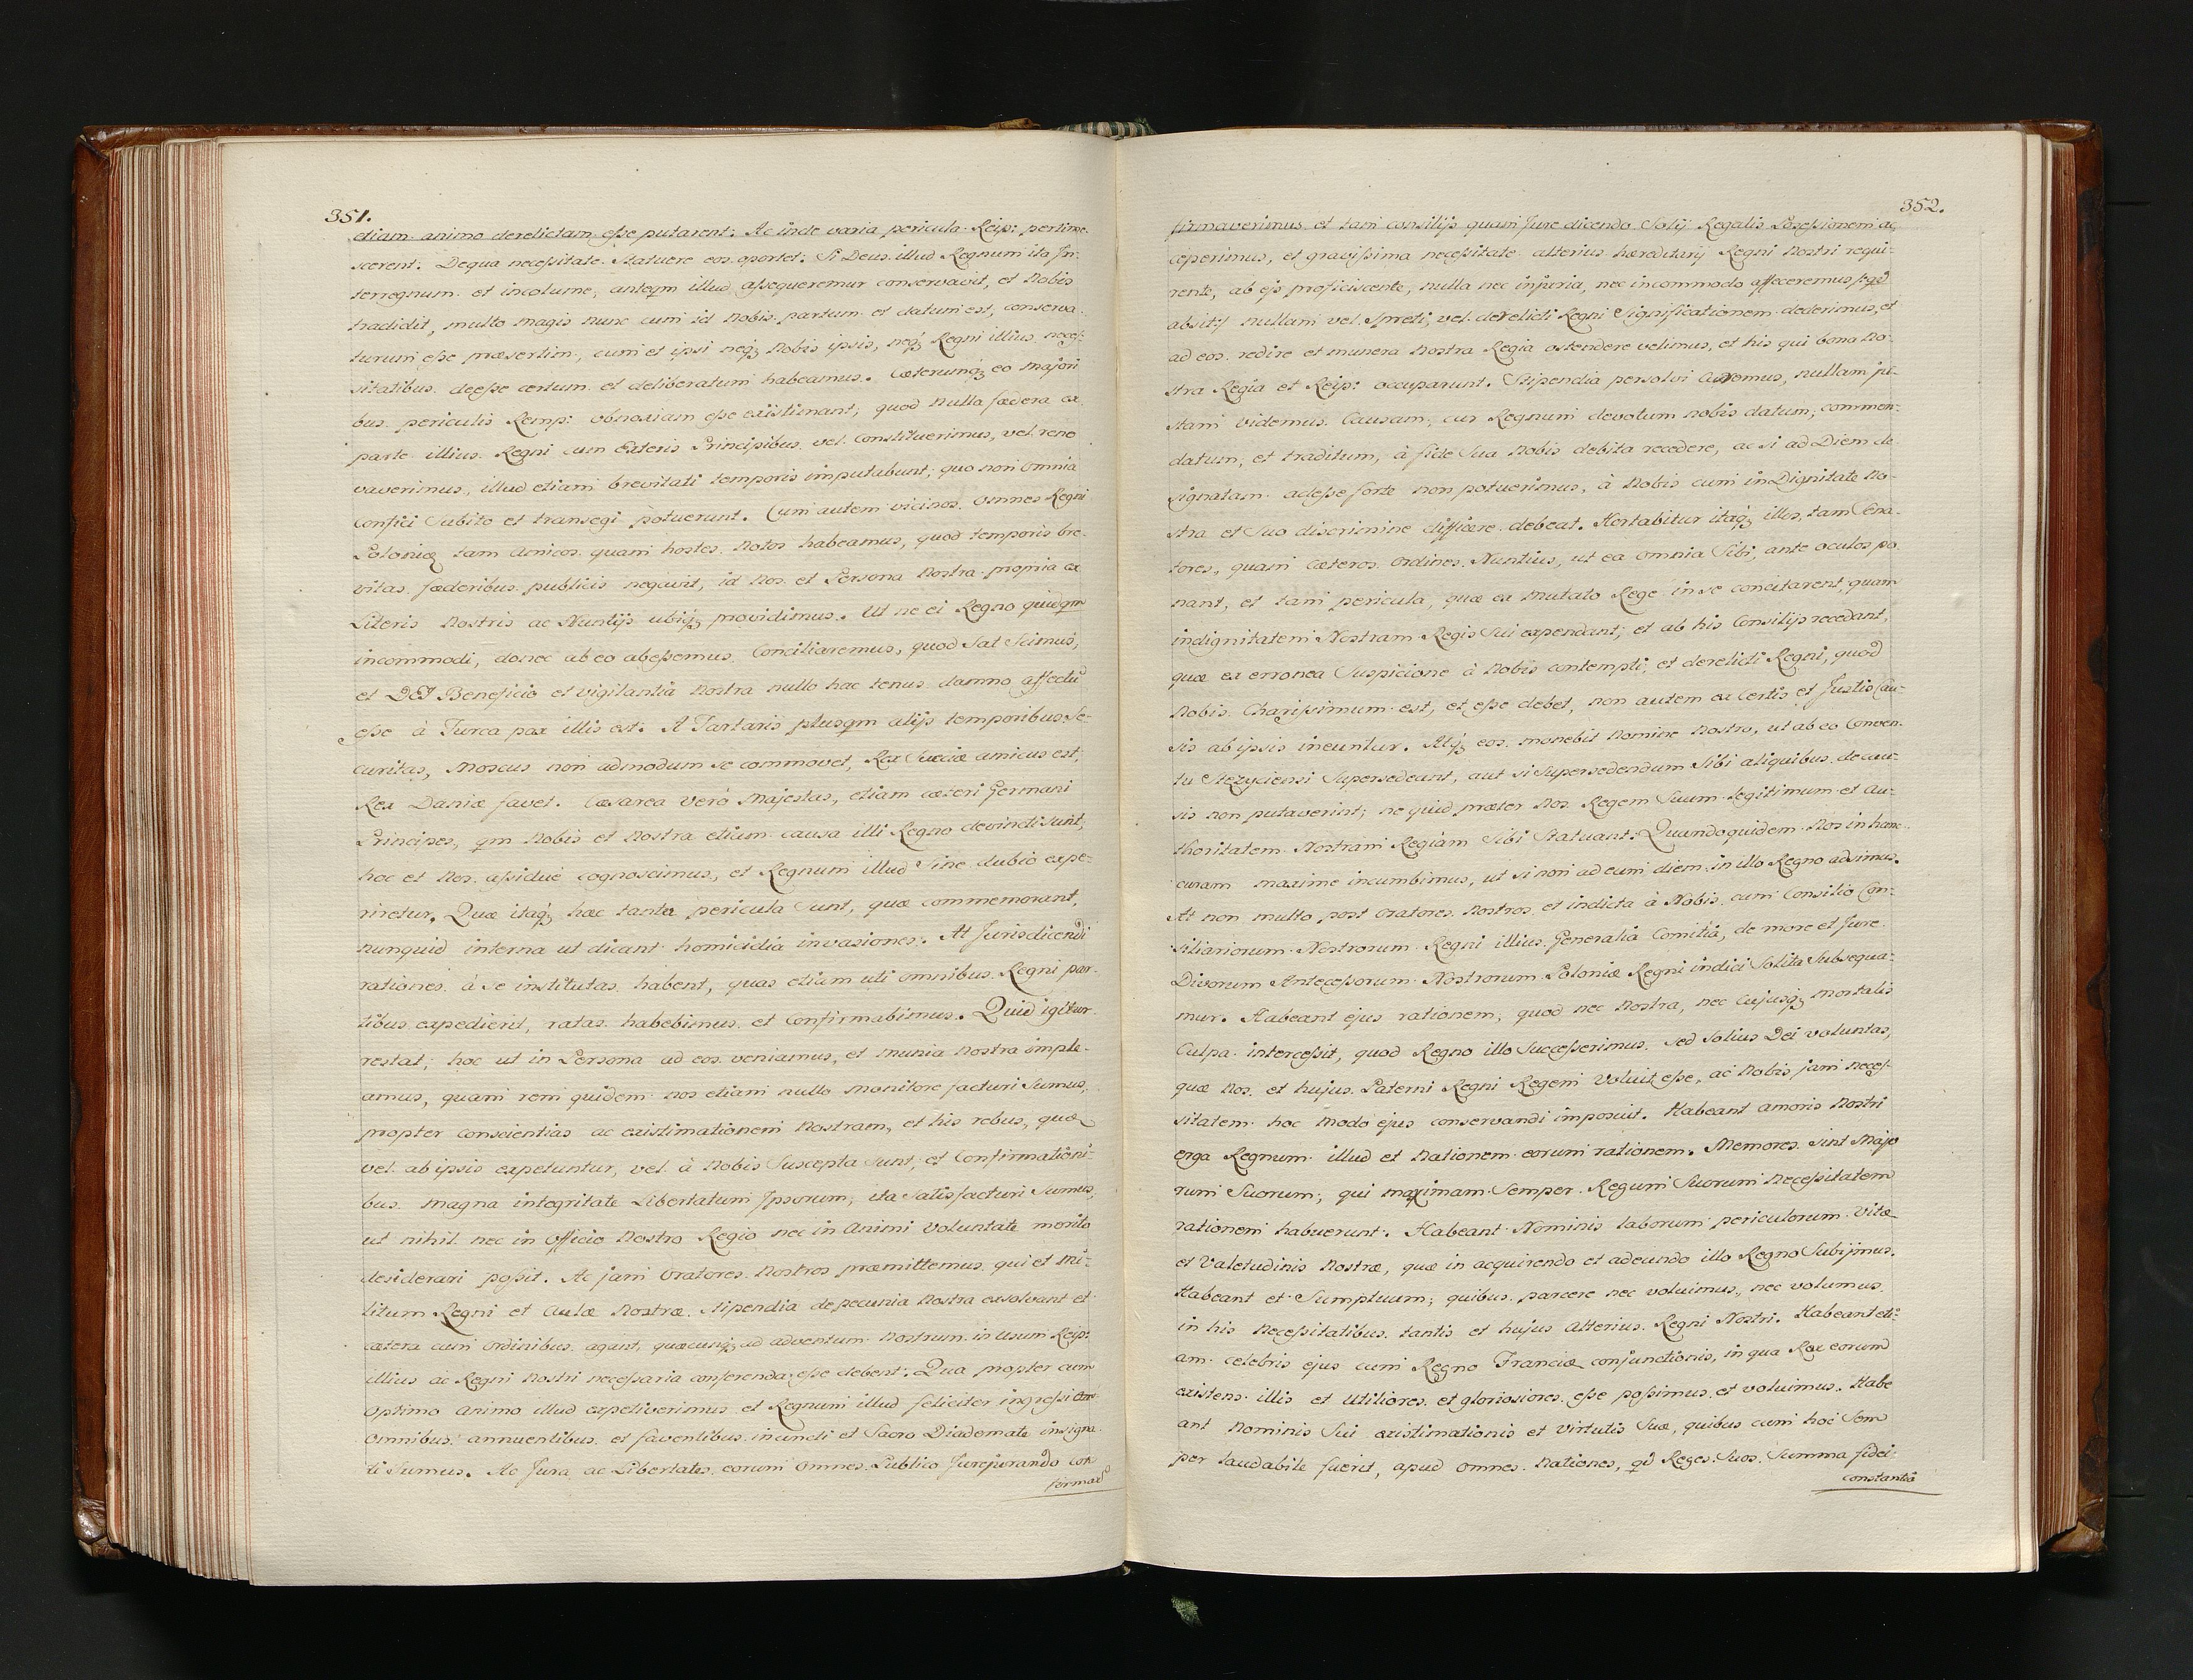 351.
etiam animo derelictam esse putarent: Ac inde varia pericula Reip: pertime-
scerent: De qua necessitate Statuere eos oportet: Si Deus illud Regnum ita In-
terregnum et incolume, anteqm illud assequeremur conservavit, et Nobis
tradidit, multo magis nunc cum id Nobis partum et datum est, conserva-
turum esse praesertim, cum et ipsi neq; Nobis ipsis, neq; Regni illius neces-
sitatibus deesse certum et deliberatum habeamus. Caeterumq; eo majori
bus periculis Remp: obnoxiam esse existimant, quod Nulla faedera ex
parte illius Regni cum Exteris Principibus vel Constituerimus, vel reno
vaverimus, illud etiam brevitati temporis imputabunt, quo non omnia
confici Subito et transegi potuerunt. Cum autem vicinos Omnes Regni
Poloniae tam Amicos quam hostes Notos habeamus, quod temporis bre-
vitas faederibus publicis negavit, id Nos et Persona Nostra propria ex
Literis Nostris ac Nuntijs ubiq; providimus. Ut ne ei Regno quidqm
incommodi, donec ab eo abessemus Conciliaremus, quod Sat Scimus,
et DEI Beneficio et vigilantiâ Nostra nullo hac tenus damno affectū
esse à Turca pax illis est: A Tartaris plusqm alijs temporibus Se-
curitas, Moscus non admodum se commovet, Rex Sueciae amicus est,
Rex Daniae favet. Caesarea verò Majestas, etiam caeteri Germani
Principes, qm Nobis et Nostra etiam causa illi Regno devincti Sunt,
hoc et Nos assiduè cognoscimus, et Regnum illud Sine dubio expe-
riretur. Quae itaq; haec tanta pericula Sunt, quae commemorant,
nunquid interna ut dicant homicidia invasiones: At Jurisdicendi
rationes à Se institutas habent, quas etiam uti omnibus Regni par-
tibus expedierit, ratas habebimus et Confirmabimus. Quid igitur
restat, hoc ut in Persona ad eos veniamus, et Munia Nostra imple-
amus, quam rem quidem nos etiam nullo Monitore facturi Sumus,
propter conscientias ac existimationem Nostram, et his rebus, quae
vel ab ipsis expetuntur, vel à Nobis Suscepta Sunt, et Confirmationi-
bus magna integritate Libertatum Ipsorum, ita Satisfacturi Sumus,
ut nihil nec in Officio Nostro Regio nec in Animi Voluntate meritò
desiderari possit. Ac jam Oratores Nostros praemittemus qui et Mi-
litum Regni et Aulae Nostrae Stipendia de pecunia Nostra exsolvant et
caetera cum Ordinibus agant, quaecunq; ad adventum Nostrum in Usum Reip:
illius ac Regni Nostri necessaria conferenda esse debent: Qua propter cum
Optimo Animo illud expetiverimus et Regnum illud feliciter ingressi
Omnibus annuentibus et faventibus inuncti et Sacro Diademate insigna-
ti Sumus. Ac Jura ac Libertates eorum Omnes Publico Jurejurando con
firmav
352.
firmaverimus et tam consilijs quam Jure dicendo Solij Regalis Possessionem ac
ceperimus, et gravissima necessitate alterius haereditarij Regni Nostri requi-
rente, ab ijs proficiscente, nulla nec injuria, nec incommodo affeceremus /:qd
absit:/ nullam vel Spreti, vel derelicti Regni Significationem dederimus, et
ad eos redire et munera Nostra Regia ostendere velimus, et his qui bona No-
stra Regia et Reip: occuparunt. Stipendia persolvi Curemus, nullam ju-
stam videmus Causam, cur Regnum devotum nobis datum, commen-
datum, et traditum, à fide Sua Nobis debita recedere, ac si ad Diem de
signatam adesse forte non potuerimus, à Nobis cum in Dignitate No-
stra et Suo discrimine difficere debeat. Hortabitur itaq; illos, tam Sena-
tores, quam caeteros Ordines Nuntius, ut ea omnia Sibi, ante oculos po
nant, et tam pericula, quae ex mutato Rege in se concitarent, quam
indignitatem Nostram Regis Sui expendant, et ab his Consilijs recedant,
quae ex erronea Suspicione à Nobis contempti, et derelicti Regni, quod
Nobis Charissimum est, et esse debet, non autem ex Certis et Justis Cau-
sis ab ipsis ineuntur. Atq; eos monebit Nomine Nostro, ut ab eo Conven-
tu Stezyciensi Supersedeant, aut si Supersedendum Sibi aliquibus de cau-
sis non putaverint, ne quid praeter Nos Regem Suum legitimum et Au-
thoritatem Nostram Regiam Sibi Statuant: Quandoquidem Nos in hanc
curam maxime incumbimus, ut si non ad eum diem in illo Regno adsimus.
At non multo post Oratores Nostros et indicta à Nobis cum Consilio Con-
siliariorum Nostrorum Regni illius Generalia Comitia, de more et Jure
Divorum Antecessorum Nostrorum Poloniae Regni indici Solita Subsequa-
mur. Habeant ejus rationem, quod nec Nostra, nec Cujusq; mortalis
Culpa intercessit, quod Regno illo Successerimus. Sed Solius Dei Voluntas,
quae Nos et hujus Paterni Regni Regem Voluit esse, ac Nobis jam neces-
sitatem hoc modo ejus conservandi imposuit. Habeant Amoris Nostri
erga Regnum illud et Nationem eorum rationem. Memores Sint Majo
rum Suorum, qui maximam Semper Regum Suorum Necessitatem
rationem habuerunt. Habeant Nominis laborum periculorum Vitae
et Valetudinis Nostrae, quae in acquirendo et adeundo illo Regno Subijmus.
Habeant et Sumptuum, quibus parcere nec voluimus, nec volumus
in his Necessitatibus tantis et hujus Alterius Regni Nostri. Habeant eti-
am celebris ejus cum Regno Franciae conjunctionis, in qua Rex eorum
existens illis et Utiliores et gloriosiores esse possimus et voluimus. Habe
ant Nominis Sui existimationis et Virtutis Suae, quibus cum hoc Sem
per laudabile fuerit, apud Omnes Nationes, qd Reges Suos Summa fidei
constantiâ